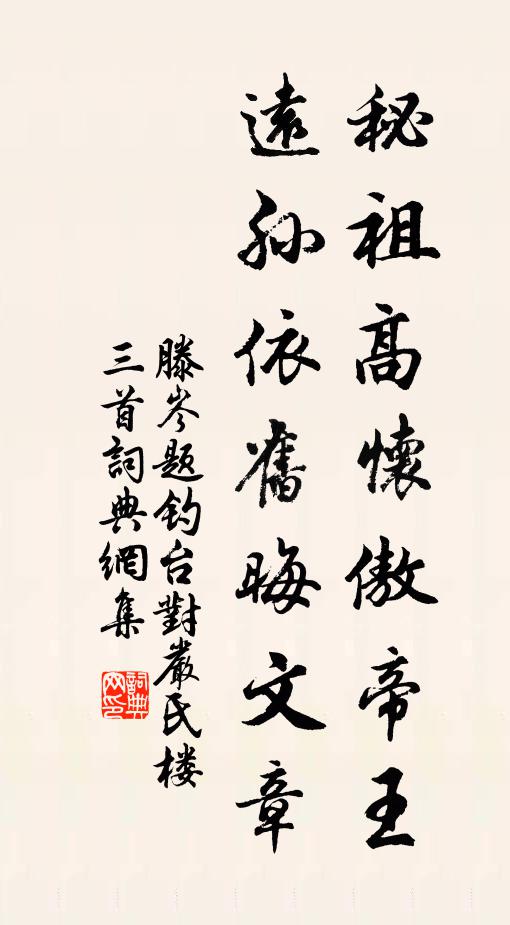 秘祖高懷傲帝王
遠孫依舊晦文章
滕岑题钓台對嚴氏楼
三首詞典網集
詞典网印